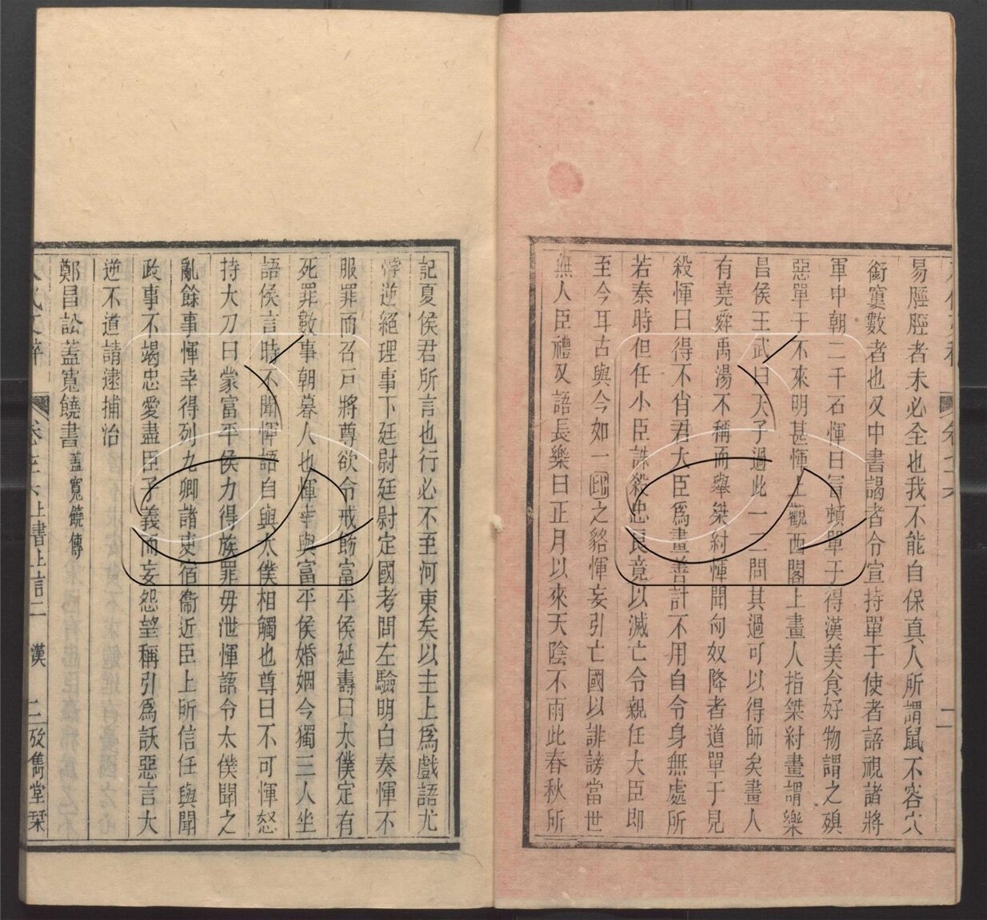 易脛脛者未必全也我不能自保真人所謂鼠不容穴
銜窶數者也又中書謁者令宣持單于使者語視諸將
軍中朝二千石惲曰冒頓單于得漢美食好物謂之殠
惡單于不來明甚惲上觀西閣上畫人指桀紂畫謂樂
昌侯王武曰天子過此一二問其過可以得師矣畫人
有堯舜禹湯不稱而舉桀紂惲聞匈奴降者道單于見
殺惲曰得不肖君大臣爲畫善計不用自令身無處所
若秦時但任小臣誅殺忠良竟以滅亡令親任大臣即
至今耳古與今如一邱之貉惲妄引亡國以誹謗當世
無人臣禮又語長樂曰正月以來天陰不雨此春秋所
記夏侯君所言也行必不至河東矣以主上爲戲語尤
悖逆絕理事下廷尉廷尉定國考問左驗明白奏惲不
服罪而召戸將尊欲令戒飭富平侯延壽曰太僕定有
死罪數事朝暮人也惲幸與富平侯婚姻今獨三人坐
語侯言時不聞惲語自與太僕相觸也尊曰不可惲怒
持大刀曰蒙富平侯力得族罪毋泄惲語令太僕聞之
亂餘事惲幸得列九卿諸吏宿衞近臣上所信任與聞
政事不竭忠愛盡臣子義而妄怨望稱引爲訞惡言大
逆不道請逮捕治
鄭昌訟蓋寬饒書 蓋寬饒傳
上書上言二 漢 二 攷雋堂栞